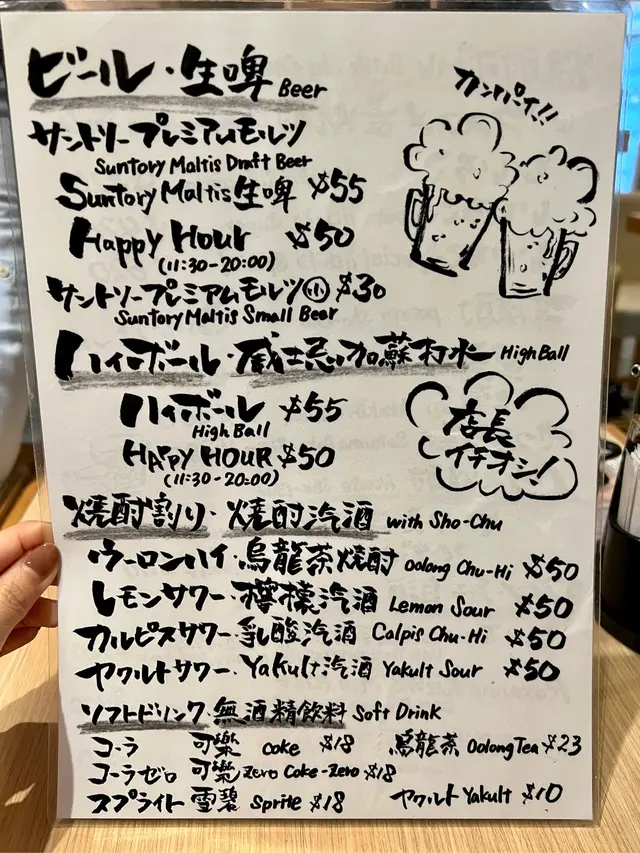 ビール・生啤 Beer
カンパイ!!
サントリープレミアムモルツ
Suntory Maltis Draft Beer
Suntory Maltis生啤 $55
Happy Hour $50
(11:30-20:00)
サントリープレミアムモルツ㊙小 $30
Suntory Maltis Small Beer
ハイボール・威士忌加蘇打水 HighBall
ハイボール $55
High Ball
HAPPY HOUR $50
(11:30-20:00)
店長
イチオシ!
焼酎割り・燒酎汽酒 with Sho-Chu
ウーロンハイ・烏龍茶燒酎 Oolong Chu-Hi $50
レモンサワー・檸檬汽酒 Lemon Sour $50
カルピスサワー・乳酸汽酒 Calpis Chu-Hi $50
ヤクルトサワー・Yakult汽酒 Yakult Sour $50
ソフトドリンク・無酒精飲料 Soft Drink
コーラ 可樂 coke $18 烏龍茶 Oolong Tea $23
コーラゼロ 可樂Zero Coke-Zero $18
スプライト 雪碧 Sprite $18 ヤクルト Yakult $10